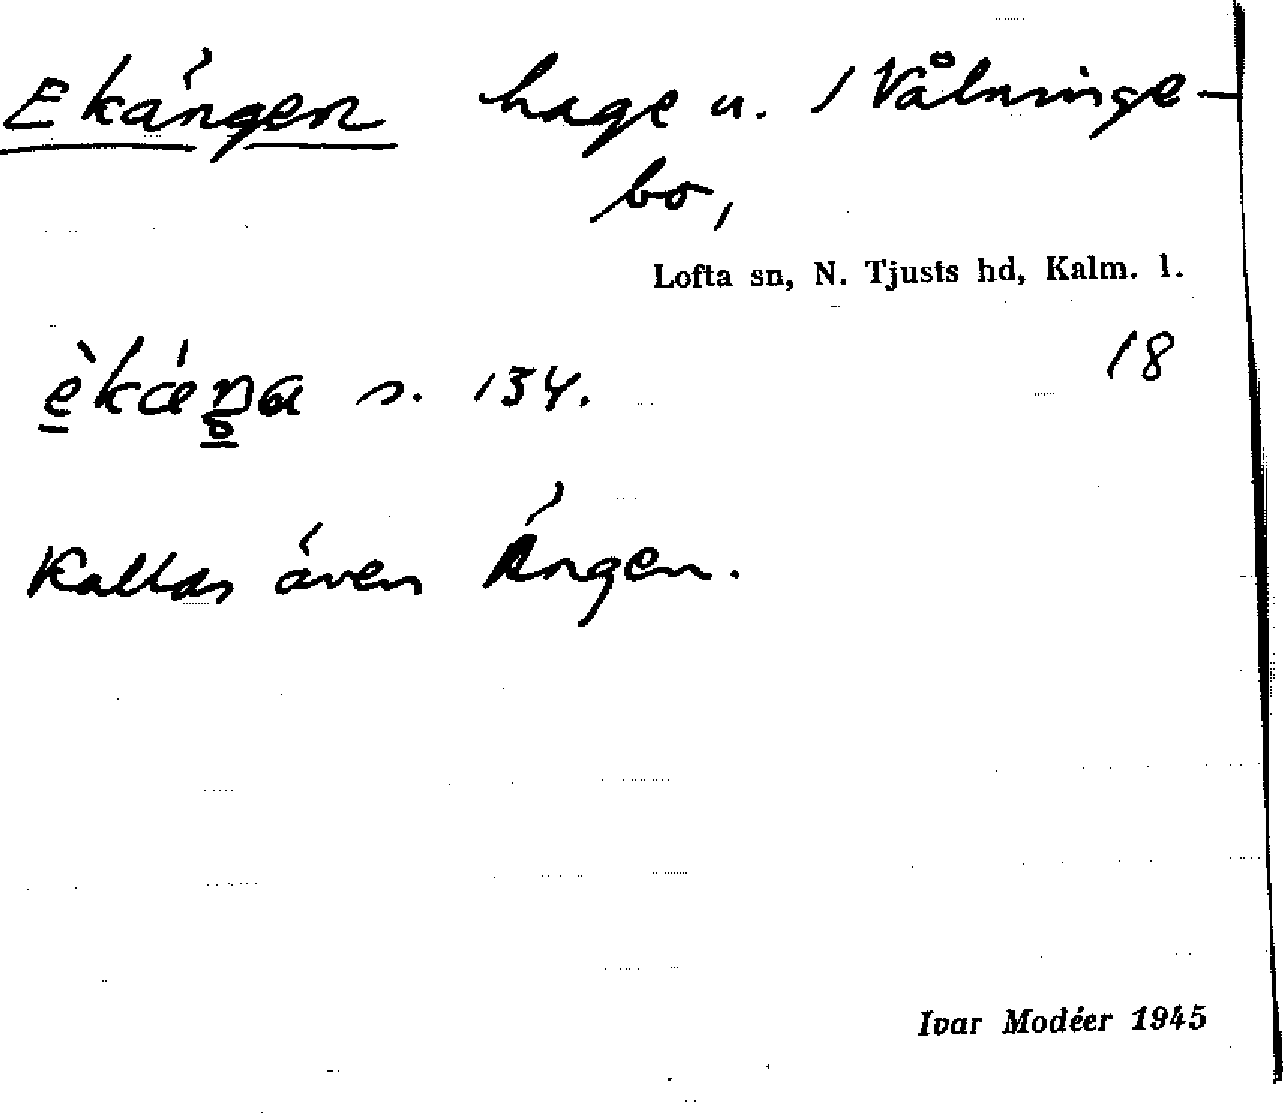 Ekängen hage u. / Vålninge-
bo,
Lofta sn, N. Tjusts hd, Kalm. l.
18
s. 134.
Kallas även Ängen.
Ivar Modéer 1945